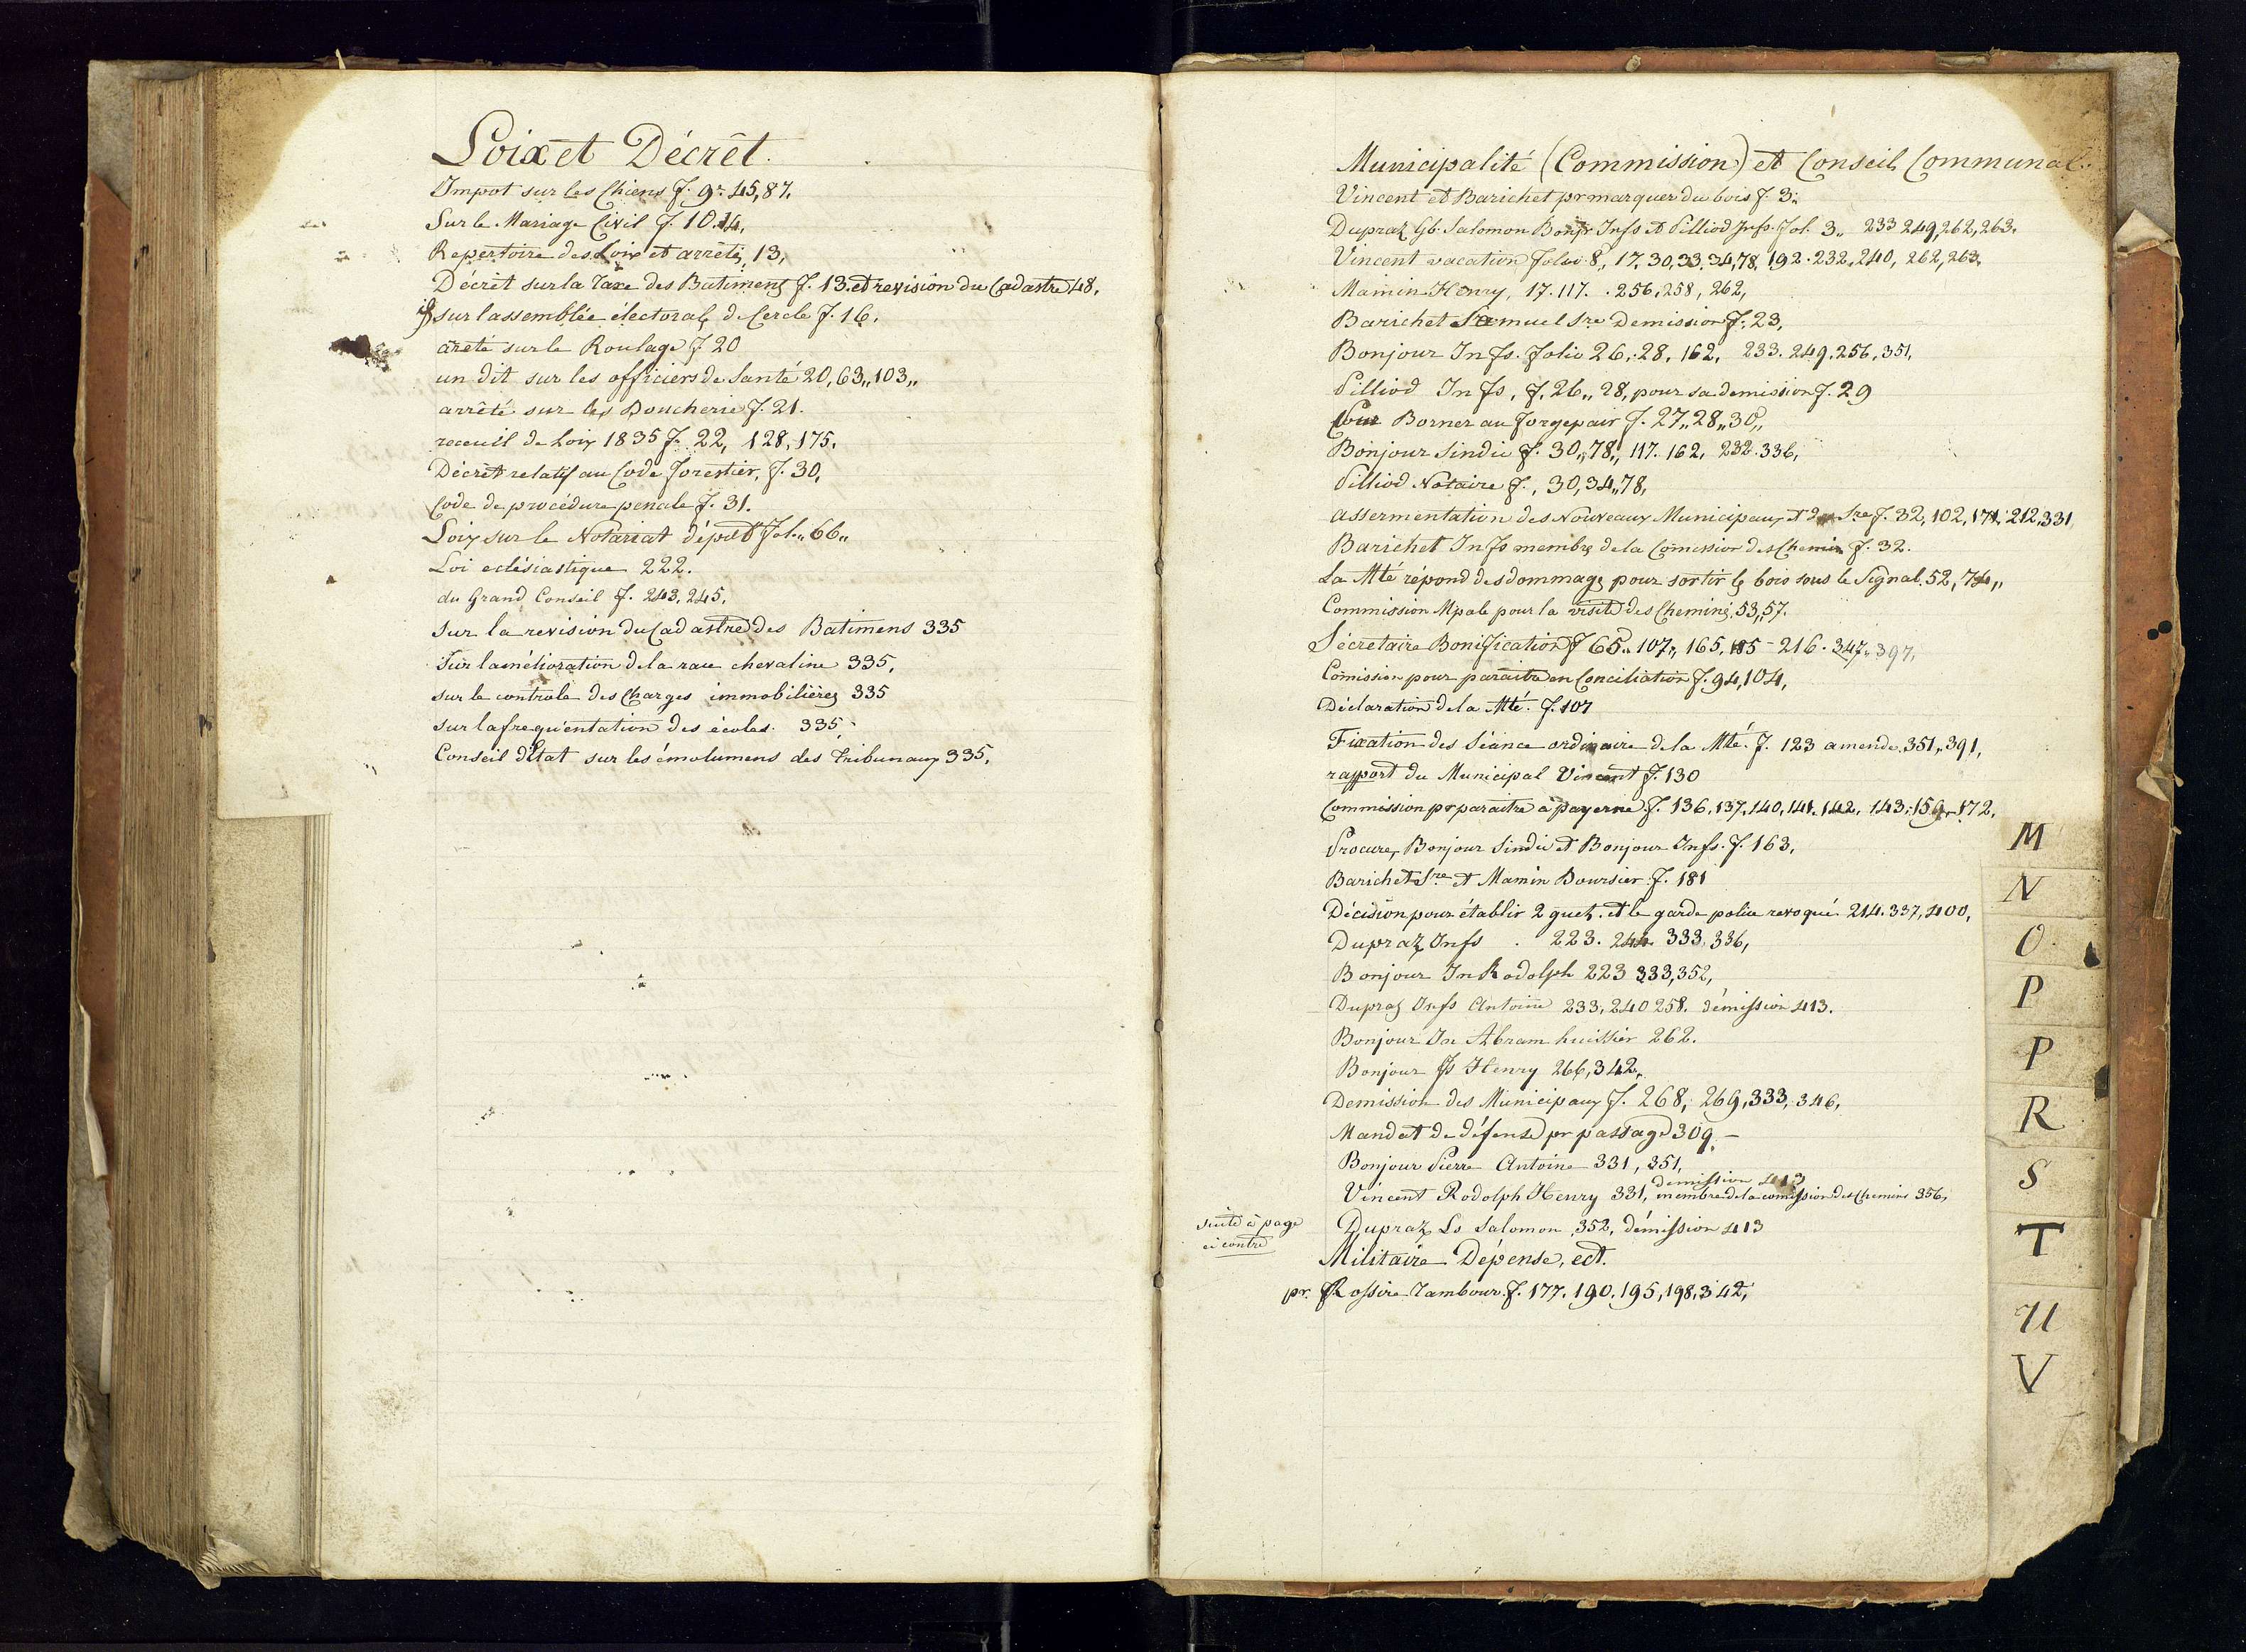 Loix et Décrêt.
Impot sur les Chiens f. 9. 45, 87.
Sur le Mariage Civil f. 10. 14,
Repertoire des Loix et arrêtés, 13,
Décrêt sur la Taxe des Batimens f. 13. et revision du Cadastre 48.
sur l'assemblée électorale de Cercle f. 16.
arêté sur le Roulage f. 20
un dit sur les officiers de Santé 20, 63,, 103,,
arrêté sur les Boucherie f. 21.
receuil de Loix 1835 f. 22, 128, 175.
Décrêt relatif au Code forestier, f. 30,
Code de procédure penale f. 31.
Loix sur le Notariat dépôt Fol. 66,,
Loi eclésiastique 222.
du Grand Conseil f. 243, 245,
Sur la revision du Cadastre des Batimens 335
Sur lamélioration de la race chevaline 335,
sur le controle des Charges immobilières 335
sur la frequentation des écoles. 335,
Conseil d'Etat sur les émolumens des Tribunaux 335,
Municipalité (Commission) et Conseil Communal.
Vincent et Barichet pr marquer du bois f. 3.
Dupraz Gb. Salomon Bonjr Jnfs et Pilliod Jnfs. fol. 3,, 233 249, 262, 263.
Vincent vacation Folio 8,, 17, 30, 33, 34, 78, 192. 232, 240, 262, 263,
Mamin Henry, 17. 117. 256, 258, 262,
Barichet Samuel Sre Demission f. 23,
Bonjour Jn fs. folio 26, 28, 162, 233. 249. 256, 351,
Pilliod Jn fs, f. 26,, 28, pour sa demission f. 29
Pour Borner au Forgepair f. 27,, 28,, 30,,
Bonjour Sindic f. 30,, 78,, 117. 162, 232. 336,
Pilliod Notaire f., 30, 34,, 78,
assermentation des Nouveaux Municipaux et du Sre f. 32, 102, 171, 212, 331,
Barichet Jn fs membre de la Comission des Chemin f. 32.
La Mté répond des dommage pour sortir le bois sous le Signal. 52, 74,,
Commission Mpale pour la visite des Chemins. 53, 57.
Sécretaire Bonification f 65,, 107,, 165, 185 - 216. 347. 397,
Comission pour paraitre en Conciliation f. 94, 104,
Déclaration de la Mté. f. 107
Fixation des Séance ordinaire de la Mté. f. 123 amende, 351,, 391,
rapport du Municipal Vincent f. 130
Commission pr paraitre à payerne f. 136, 137, 140, 141. 142, 143, 159, 172,
Procure, Bonjour Sindic et Bonjour Jnfs. f. 163,
Barichet Sre et Mamin Boursier f. 181
Décision pour établir 2 guet. et le garde police revoqué. 214. 337, 400,
Dupraz Jnfs . 223. 244 333, 336,
Bonjour Jn Rodolph 223 333, 352,
Dupraz Jnfs Antoine 233, 240 258. démission 413.
Bonjour Jn Abram huissier 262.
Bonjour fs Henry 266, 342,
Demission des Municipaux f. 268, 269, 333, 346,
Mandat de défense pr passage 309. —
Bonjour Pierre Antoine 331, 351,
demission 413
Vincent Rodolph Henry 331, membre de la comission des Chemins 356,
suite à page
ci contre
Dupraz Ls Salomon, 352, démission 413
Militaire Dépense, ect.
pr. Rossire Tambour f. 177, 190, 195, 198, 342,
M
N
O
P
P
R
S
T
U
V